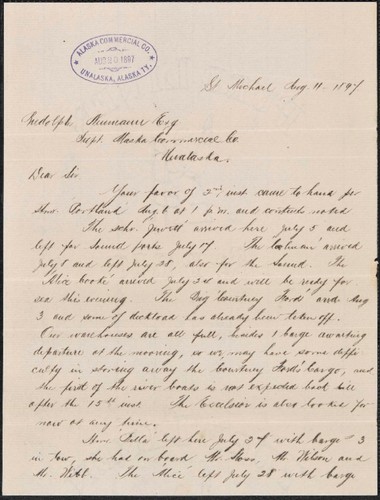 ALASKA COMMERCIAL CO.
AUG 20 1897
UNALASKA, ALASKA TY.
St Michael Aug. 11. 1897
Rudolph Neumann Esq
Supt. Alaska Commercial Co
Unalaska.
Dear Sir
Your favor of 2nd inst. came to hand per
Str. Portland Aug 6 at 1 p.m. and contents noted
The schr. Jewett arrived here July 5 and
left for Sound ports July 17. The arrived
July 8 and left July 28, also for the Sound. The
'Alice Cooke' arrived July 22d and will be ready for
sea this evening. The Big Courtney Ford and Aug
3 and some of deckload has already been taken off.
Our warehouses are all full, besides 1 barge awaiting
departure at the mooring, so we may have some diffi
culty in storing away the Courtney Fords cargo, and
the first of the river boats is not expected back till
after the 15th inst. The Excelsior is also looked for
now at any time.
Str. Bella left here July 27 with barge 3
in tow, she had on board Mr. Sloss, Mr. Wilson and
Mr. Webb. The 'Alice' left July 28 with barge